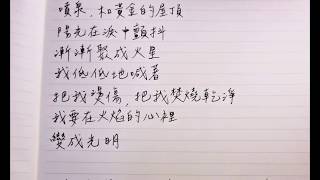 噴泉，和黃金的屋頂
陽光在淚中顫抖
漸漸聚成火星
我低低地喊著
把我燙傷，把我焚燒乾淨
我要在火焰的心裡
變成光明